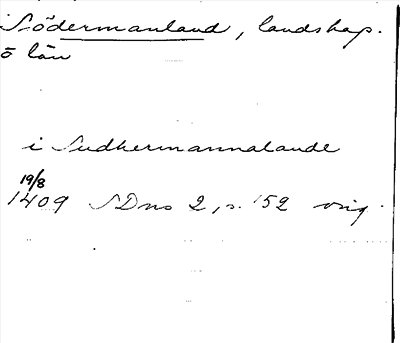 Södermanland, landskap.
ö län
i Sudhermannalande
19/8
1409 SDns 2, s. 152 orig.